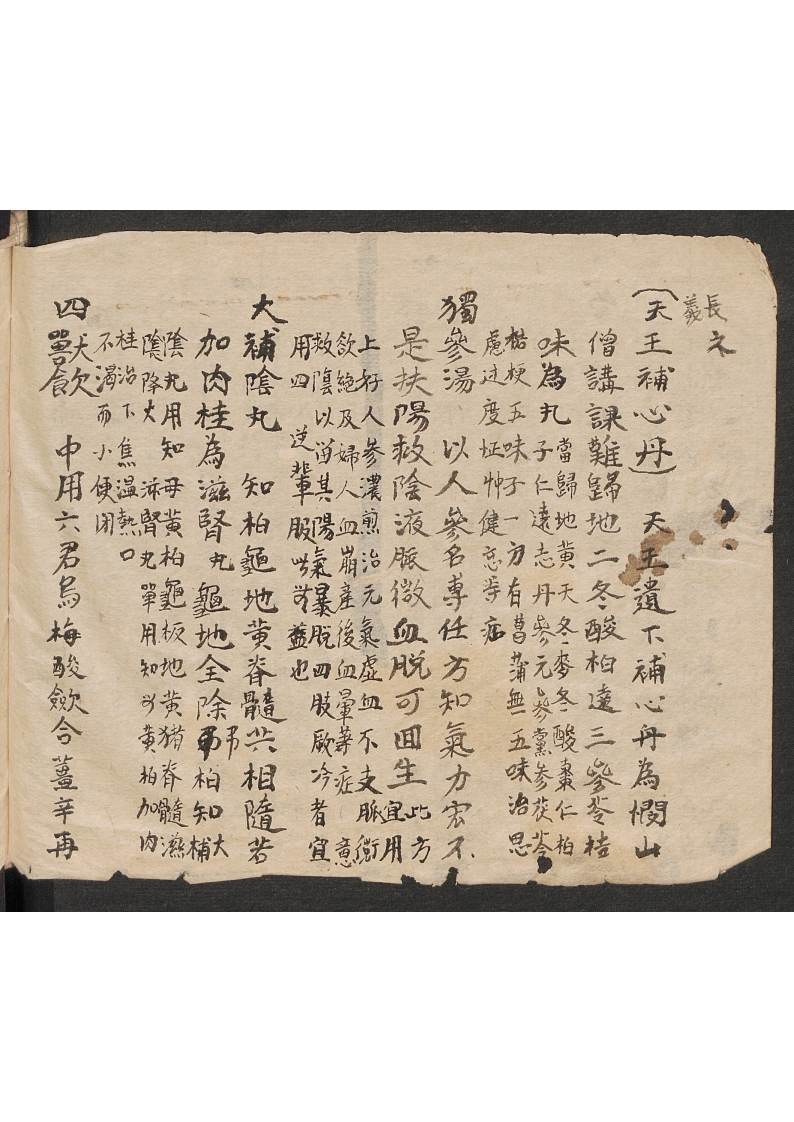 長ネ
義
天王補心丹　天王遺下補心丹為憫山
僧講課難歸地二冬酸柏遠三參苓桔
味為丸　當歸地黃天冬麥冬酸棗仁柏
子仁遠志丹參元參黨參茯苓
桔梗五味子一方有菖蒲無五味治思
慮过度怔忡健忘等症
獨參湯　以人參名專任方知氣力宏又
是扶陽救陰液脈微血脫可回生　此方宜用
上好人參濃煎治元氣虛血不支脈微
欲絕及婦人血崩產後血暈等症意
救陰以留其陽氣暴脫四肢厥冷者宜
用四逆輩服此可益也
大補陰丸　知柏龜地黃脊髓共相隨若
加肉桂為滋腎丸龜地全除弔柏知　大補
陰丸用知母黃柏龜板地黃猪脊髓滋
陰降火　滋腎丸單用知母黃柏加肉
桂治下焦温熱口
不渴而小便闭
四獸飲　中用六君烏梅酸歛合薑辛再